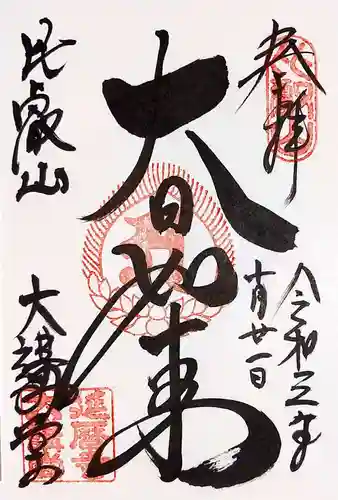 奉拝
令和三年
十月廿一日
大日如来
比叡山
大講堂
延暦寺